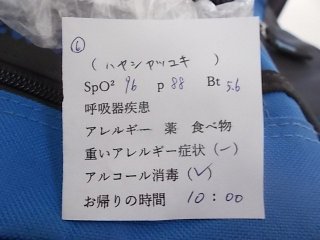 ⑥
(ハヤシヤツユキ)
SpO² 96 p 88 Bt 5.6
呼吸器疾患
アレルギー 薬 食べ物
重いアレルギー症状(ー)
アルコール消毒(✓)
お帰りの時間 10:00